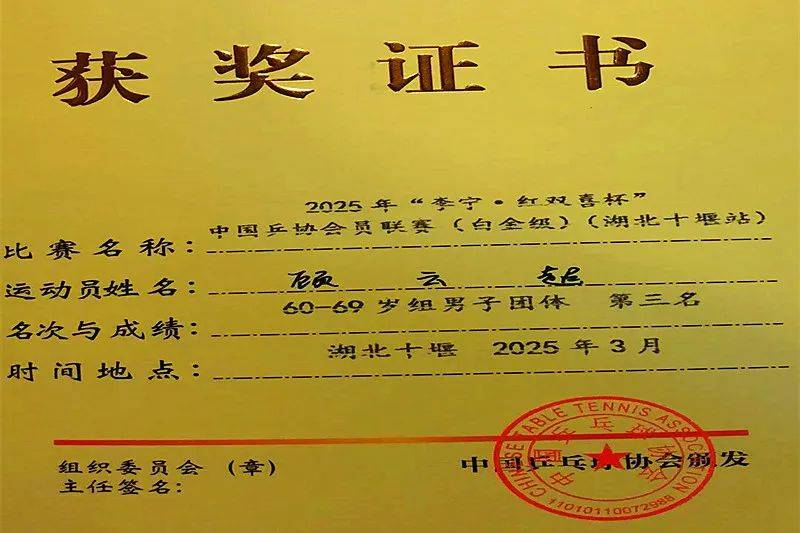 获奖证书
2025年“李宁·红双喜杯”
比赛名称：中国乒协会员联赛（白金级）（湖北十堰站）
运动员姓名：顾云起
名次与成绩：60-69岁组男子团体 第三名
时间地点：湖北十堰 2025年3月
组织委员会（章）
主任签名：
中国乒乓球协会颁发
CHINESE TABLE TENNIS ASSOCIATION
中国乒乓球协会
11010110072988